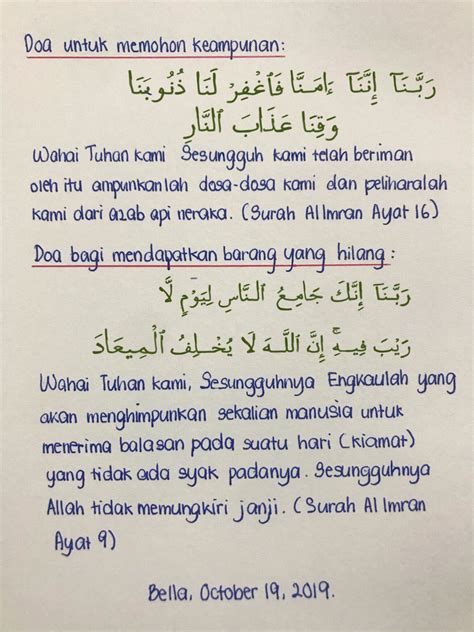 Doa untuk memohon keampunan:
رَبَّنَآ إِنَّنَآ ءَامَنَّا فَٱغْفِرْ لَنَا ذُنُوبَنَا
وَقِنَا عَذَابَ ٱلنَّارِ
Wahai Tuhan kami Sesungguh kami telah beriman
oleh itu ampunkanlah dosa-dosa kami dan peliharalah
kami dari azab api neraka. (Surah Al Imran Ayat 16)
Doa bagi mendapatkan barang yang hilang:
رَبَّنَآ إِنَّكَ جَامِعُ ٱلنَّاسِ لِيَوْمٍ لَّا
رَيْبَ فِيهِ ۚ إِنَّ ٱللَّهَ لَا يُخْلِفُ ٱلْمِيعَادَ
Wahai Tuhan kami, Sesungguhnya Engkaulah yang
akan menghimpunkan sekalian manusia untuk
menerima balasan pada suatu hari (kiamat)
yang tidak ada syak padanya. Sesungguhnya
Allah tidak memungkiri janji. (Surah Al Imran
Ayat 9)
Bella, October 19, 2019.